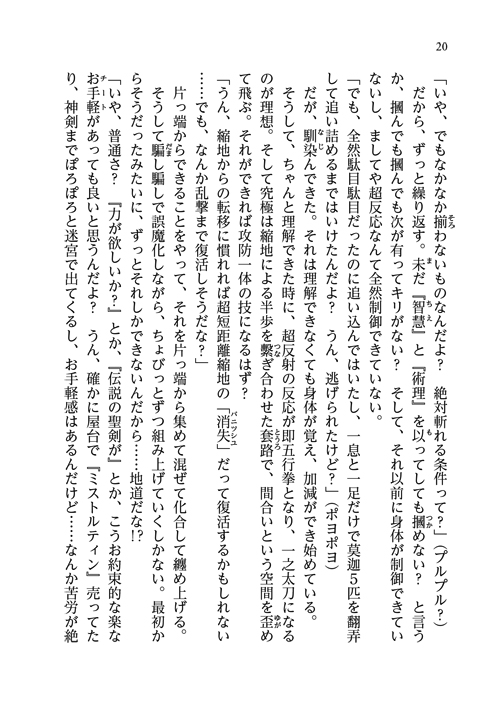 20
「いや、でもなかなか揃わないものなんだよ？　絶対斬れる条件って？」（プルプル？）
だから、ずっと繰り返す。未だ『智慧』と『術理』を以ってしても摑めない？　と言う
か、摑んでも摑んでも次が有ってキリがない？　そして、それ以前に身体が制御できてい
ないし、ましてや超反応なんて全然制御できていない。
「でも、全然駄目駄目だったのに追い込んではいたし、一息と一足だけで莫迦５匹を翻弄
して追い詰めるまではいけたんだよ？　うん、逃げられたけど？」（ポヨポヨ）
だが、馴染んできた。それは理解できなくても身体が覚え、加減ができ始めている。
そうして、ちゃんと理解できた時に、超反射の反応が即五行拳となり、一之太刀になる
のが理想。そして究極は縮地による半歩を繫ぎ合わせた套路で、間合いという空間を歪め
て飛ぶ。それができれば攻防一体の技になるはず？
「うん、縮地からの転移に慣れれば超短距離縮地の「消失」だって復活するかもしれない
……でも、なんか乱撃まで復活しそうだな？」
片っ端からできることをやって、それを片っ端から集めて混ぜて化合して纏め上げる。
そうして騙し騙しで誤魔化しながら、ちょびっとずつ組み上げていくしかない。最初か
らそうだったみたいに、ずっとそれしかできないんだから……地道だな!?
「いや、普通さ？　『力が欲しいか？』とか、『伝説の聖剣が』とか、こうお約束的な楽な
お手軽があっても良いと思うんだよ？　うん、確かに屋台で『ミストルティン』売ってた
り、神剣までぽろぽろと迷宮で出てくるし、お手軽感はあるんだけど……なんか苦労が絶